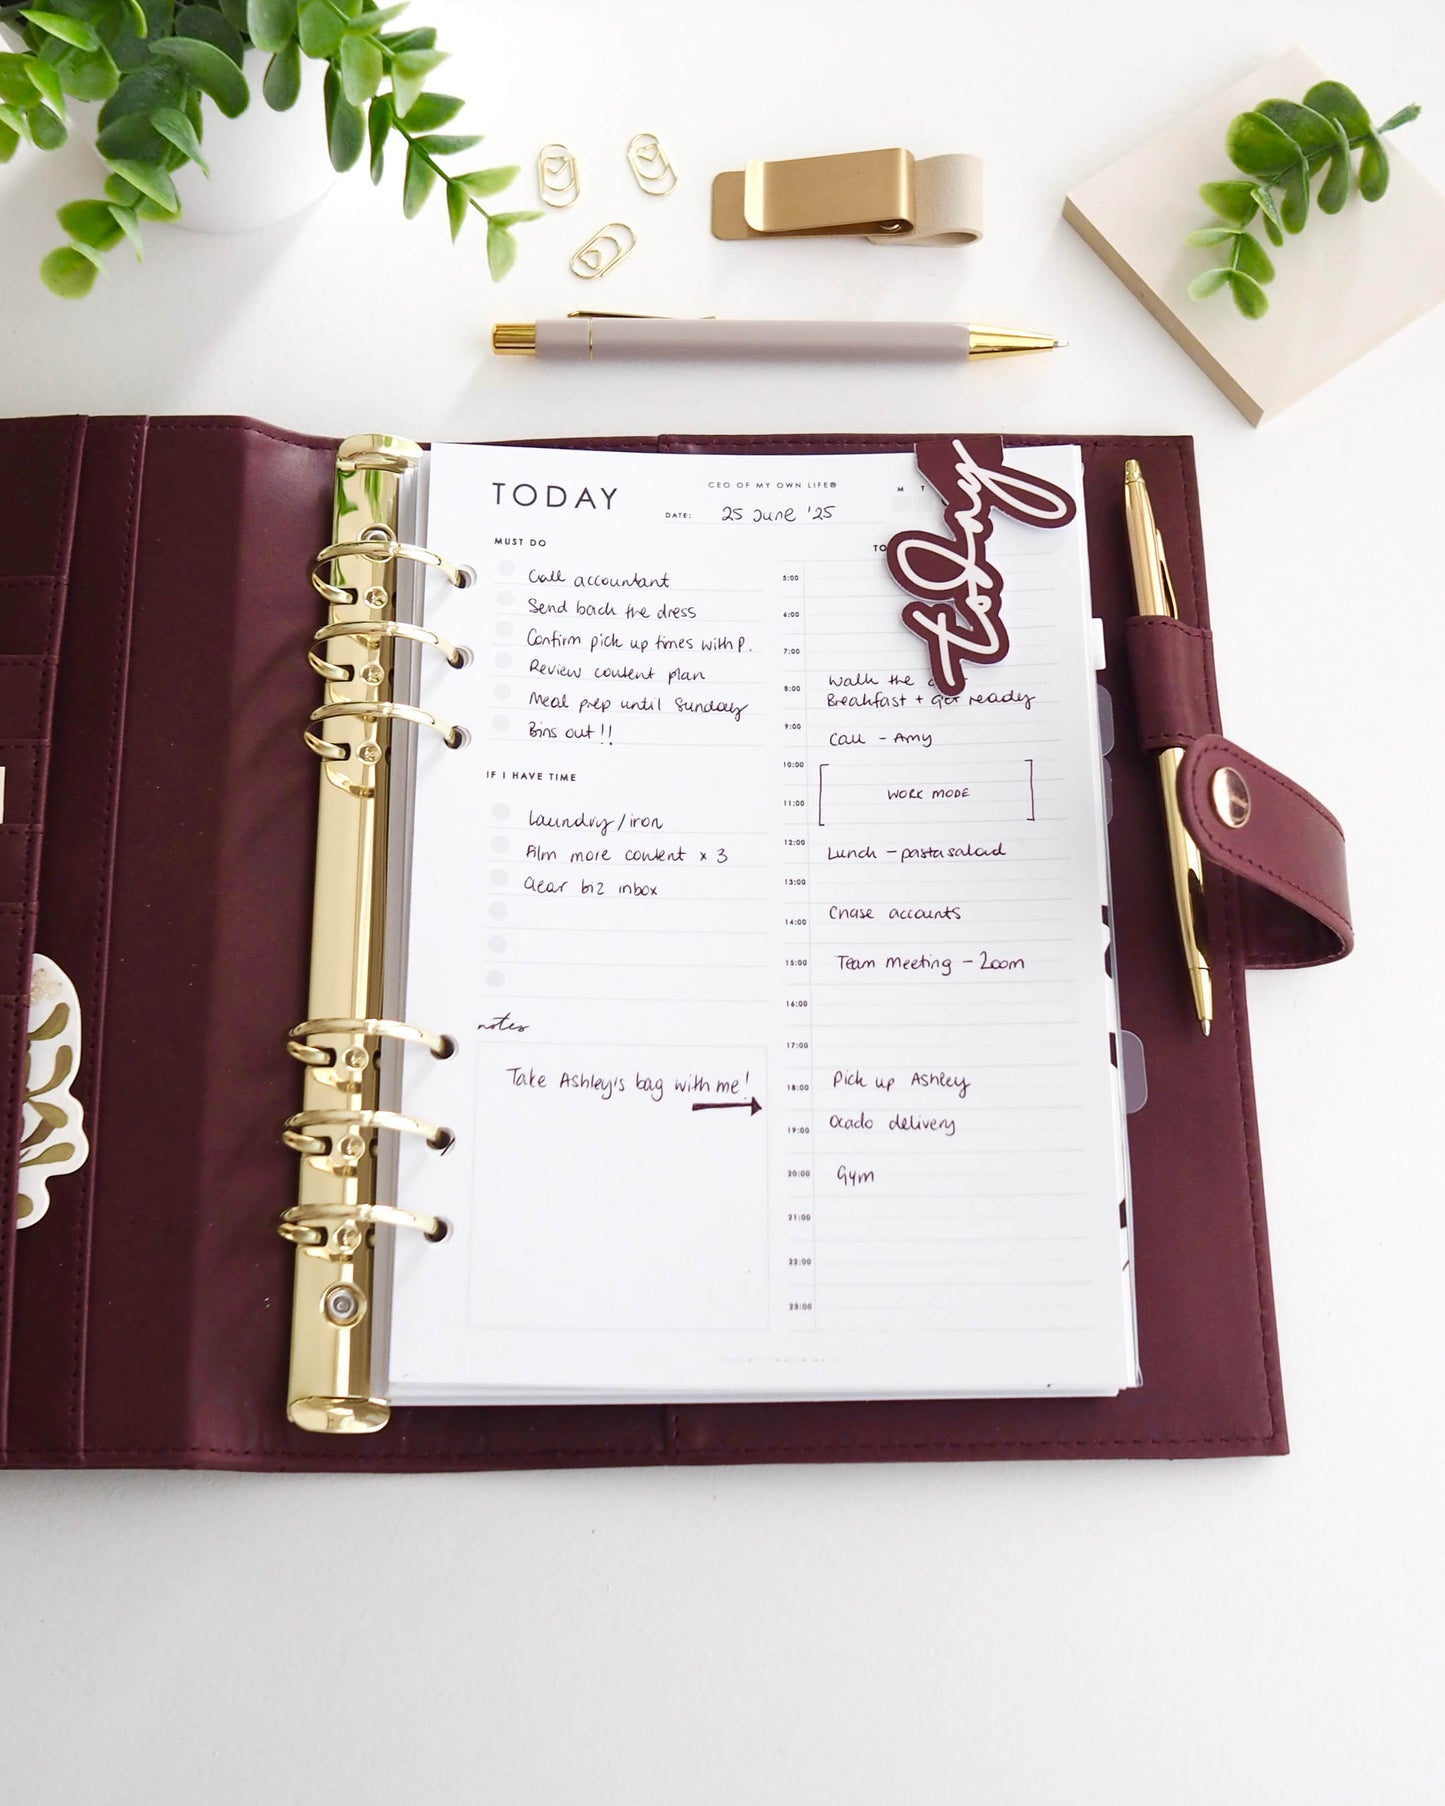 TODAY
CEO OF MY OWN LIFE®
M T
DATE: 25 June '25
today
MUST DO
Call accountant
Send back the dress
Confirm pick up times with P.
Review content plan
Meal prep until Sunday
Bins out!!
IF I HAVE TIME
Laundry/iron
Film more content x 3
Clear biz inbox
notes
Take Ashley's bag with me!
TO
5:00
6:00
7:00
Walk the
8:00
Breakfast + get ready
9:00
Call - Amy
10:00
WORK MODE
11:00
12:00
Lunch - pasta salad
13:00
14:00
Chase accounts
15:00
Team meeting - Zoom
16:00
17:00
18:00
Pick up Ashley
19:00
Ocado delivery
20:00
Gym
21:00
22:00
23:00